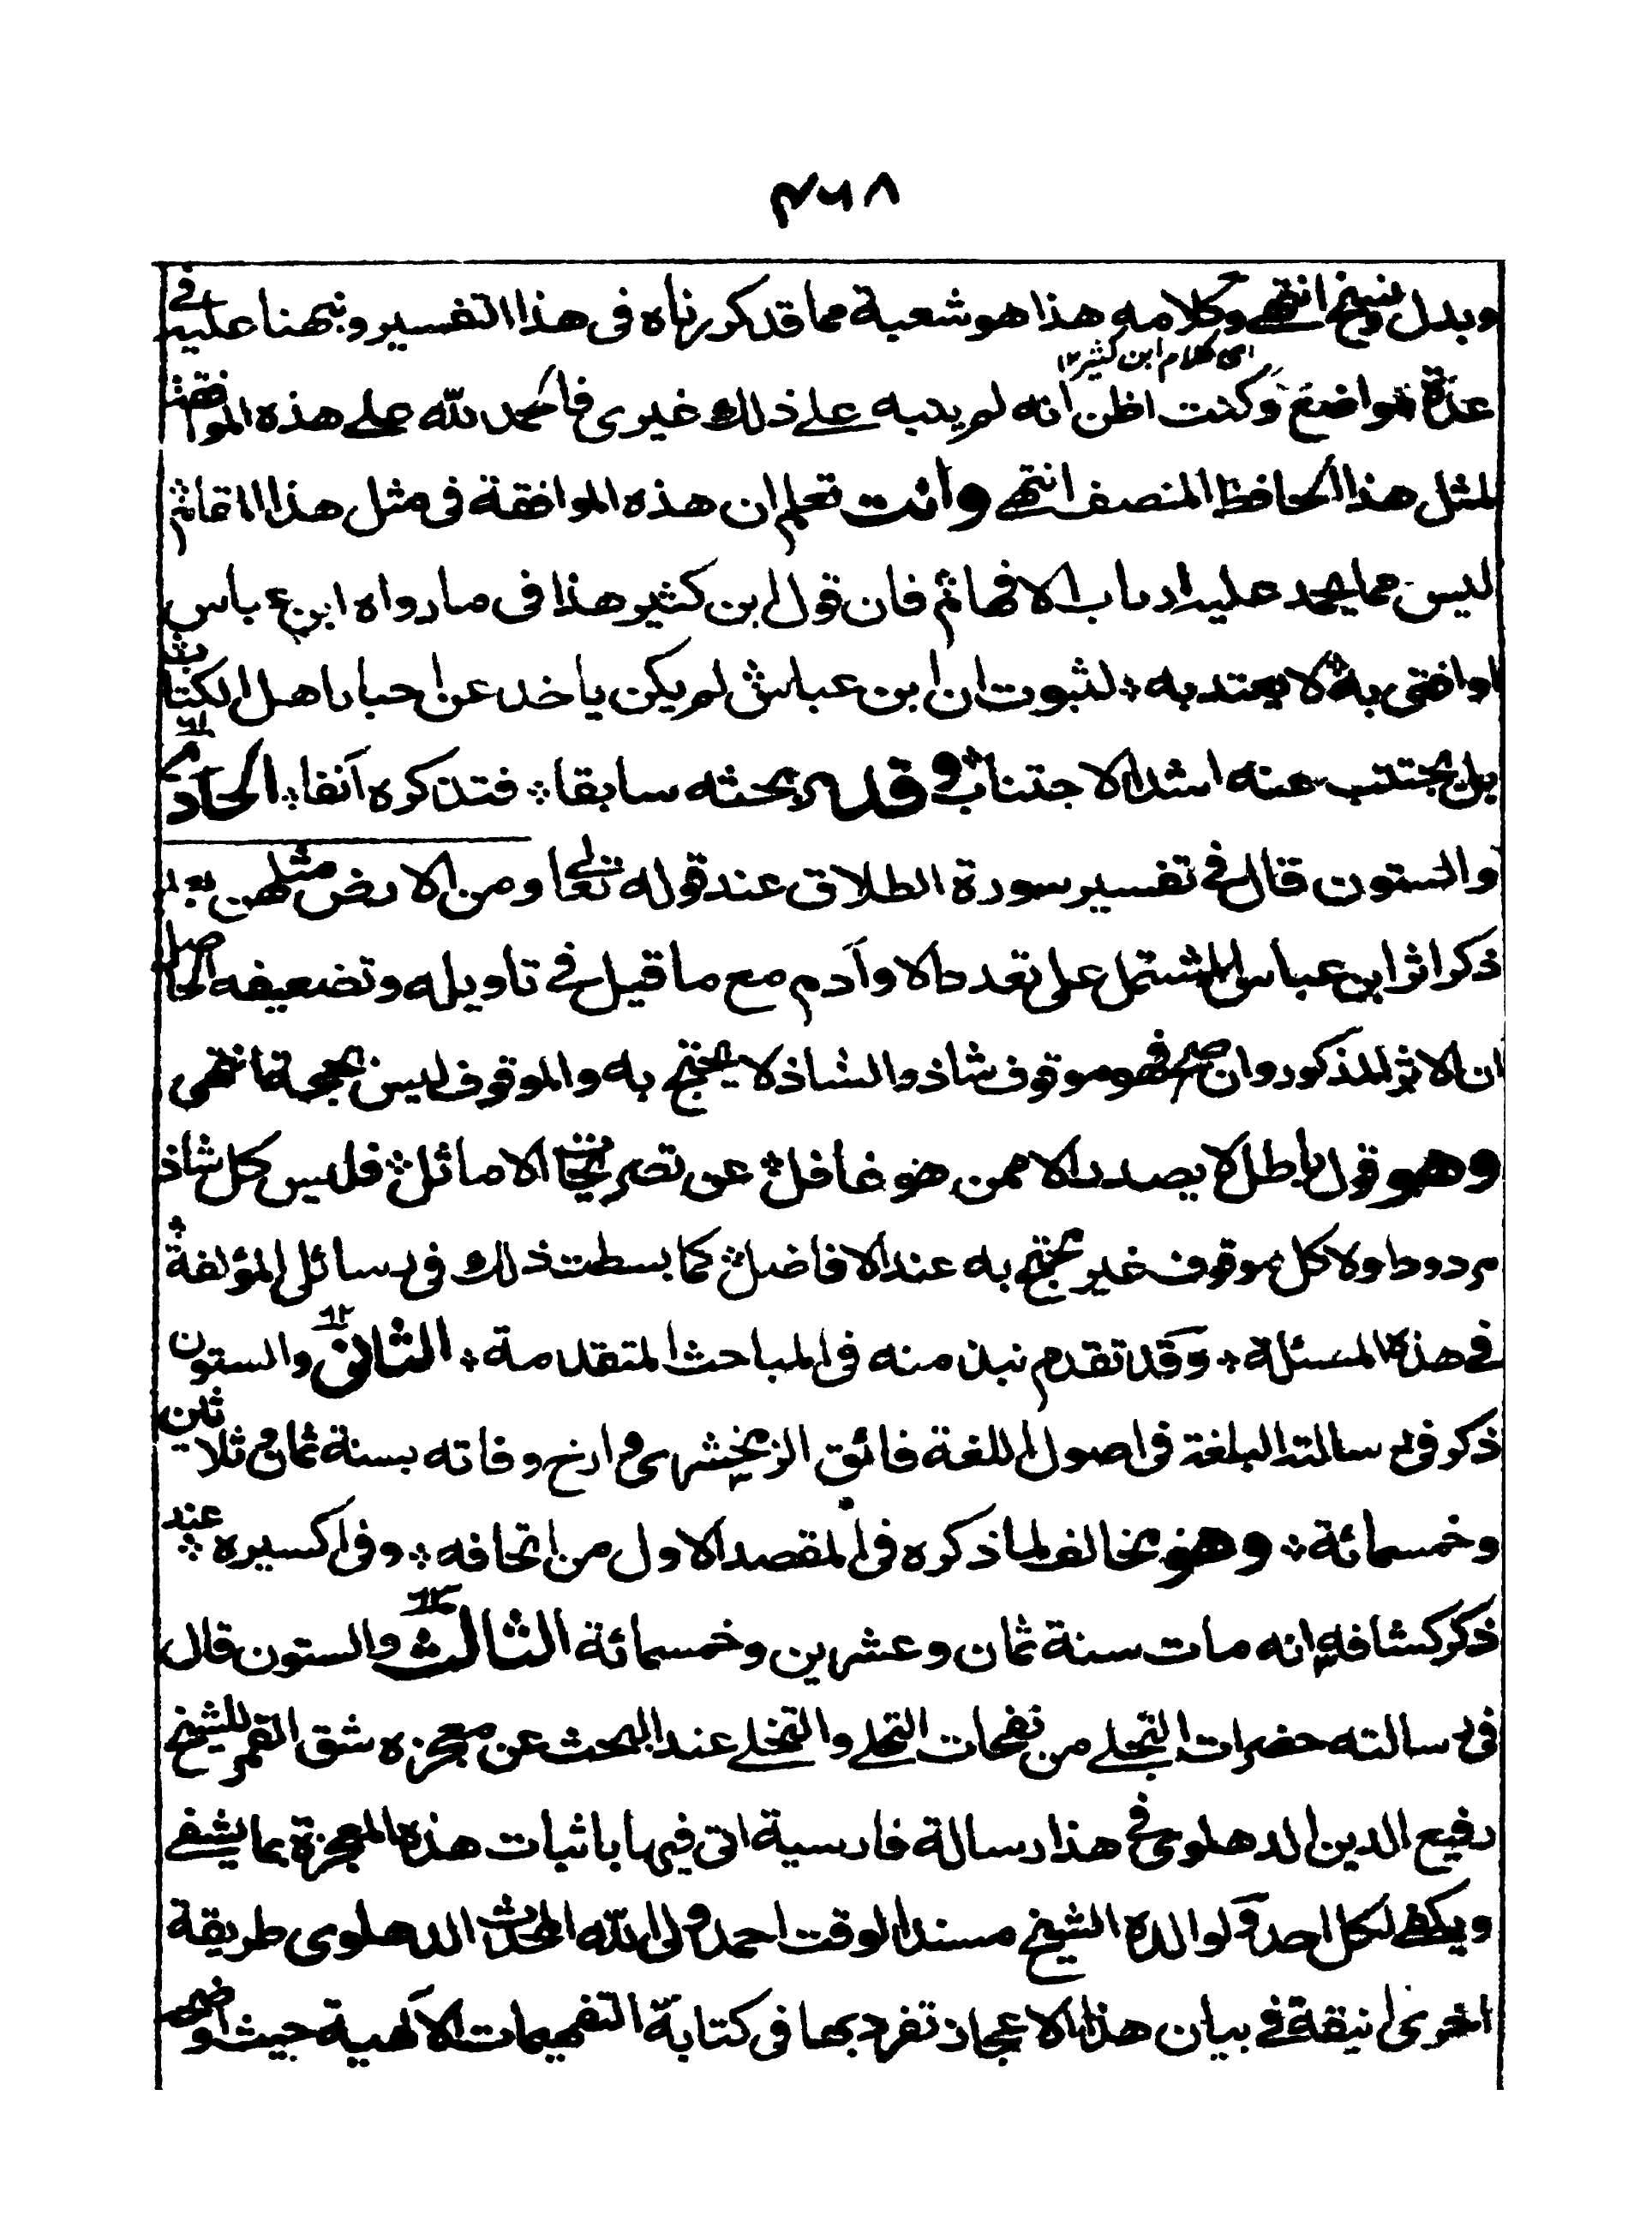 ٤٦٨
وبدل ونسخ انتهى وكلامه هذا هو شعبة مما قد كررناه فى هذا التفسير ونبهنا عليه فى
اى كلام ابن كثير ١٢
عدة مواضع وكنت اظن انه لم ينبه على ذلك غيرى فالحمد لله على هذه الموافقة
لمثل هذا الحافظ المنصف انتهى وانت تعلم ان هذه الموافقة فى مثل هذا المقام
ليس مما يحمد عليه ارباب الافهام فان قول ابن كثير هذا فى ما رواه ابن عباس
او افتى به لا يعتد به لثبوت ان ابن عباس لم يكن ياخذ عن احبار اهل الكتاب
بل يجتنب عنه اشد الاجتناب وقد مر بحثه سابقا فتذكره آنفا الحادى
٦١
والستون قال فى تفسير سورة الطلاق عند قوله تعالى ومن الارض مثلهن بعد
ذكر اثر ابن عباس المشتمل على تعدد الاوآدم مع ما قيل فى تاويله وتضعيفه الحاصل
ان الاثر المذكور وان صح فهو موقوف شاذ والشاذ لا يحتج به والموقوف ليس بحجة انتهى
وهو قول باطل لا يصدر الا ممن هو غافل عن تصريحات الاماثل فليس كل شاذ
مردودا ولا كل موقوف غير محتج به عند الافاضل كما بسطت ذلك فى رسائلى المؤلفة
فى هذه المسئلة وقد تقدم نبذ منه فى المباحث المتقدمة الثانى والستون
٦٢
ذكر فى رسالته البلغة فى اصول اللغة فائق الزمخشرى وارخ وفاته بسنة ثمان وثلاثين
وخمسمائة وهو يخالف لما ذكره فى المقصد الاول من اتحافه وفى اكسيره عند
ذكر كشافه انه مات سنة ثمان وعشرين وخمسمائة الثالث والستون قال
٦٣
فى رسالته حضرات التجلى من نفحات التحلى والتخلى عند البحث عن معجزه شق القمر للشيخ
رفيع الدين الدهلوى فى هذا رسالة فارسية اتى فيها باثبات هذه المعجزة بما يشفى
ويكفى لكل احد ولوالده الشيخ مسند الوقت احمد ولى الله المحدث الدهلوى طريقة
اخرى انيقة فى بيان هذا الاعجاز تفرد بها فى كتابه التفهيمات الالهية حيث اوضح